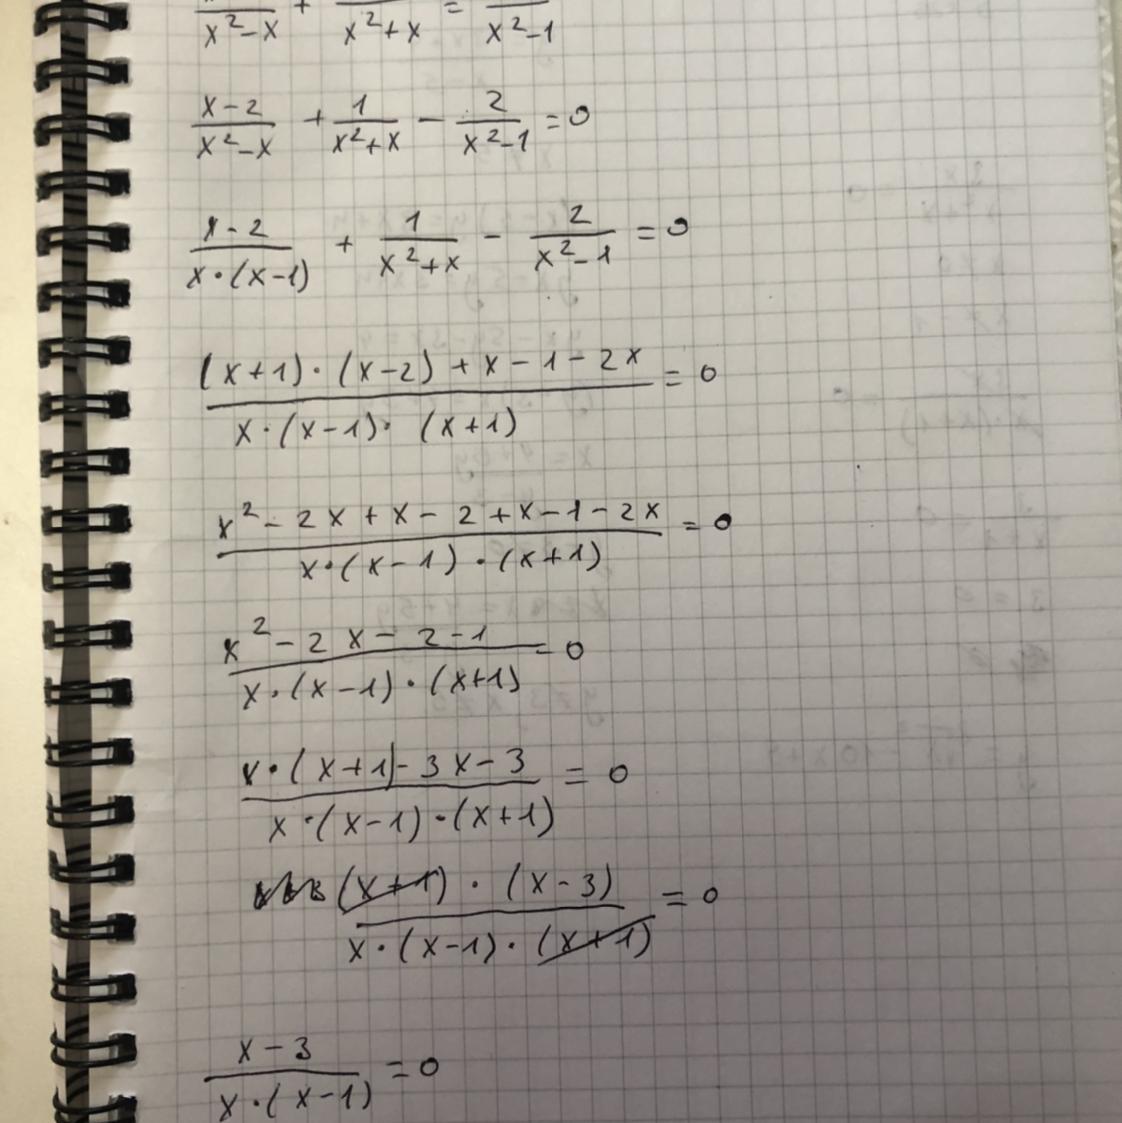 x²-x + x²+x = x²-1
x-2/x²-x + 1/x²+x - 2/x²-1 = 0
x-2/x·(x-1) + 1/x²+x - 2/x²-1 = 0
(x+1)·(x-2)+x-1-2x/x·(x-1)·(x+1) = 0
x²-2x+x-2+x-1-2x/x·(x-1)·(x+1) = 0
x²-2x-2-1/x·(x-1)·(x+1) = 0
x·(x+1)-3x-3/x·(x-1)·(x+1) = 0
(x+1)·(x-3)/x·(x-1)·(x+1) = 0
x-3/x·(x-1) = 0